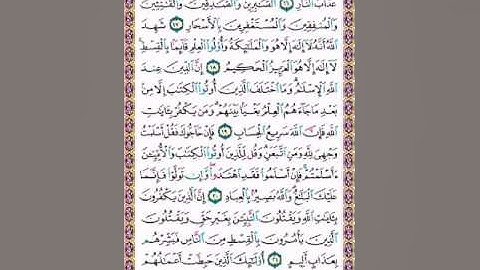 عَذَابَ النَّارِ ١٦ الصَّابِرِينَ وَالصَّادِقِينَ وَالْقَانِتِينَ
وَالْمُنفِقِينَ وَالْمُسْتَغْفِرِينَ بِالْأَسْحَارِ ١٧ شَهِدَ
اللَّهُ أَنَّهُ لَا إِلَٰهَ إِلَّا هُوَ وَالْمَلَائِكَةُ وَأُولُوا الْعِلْمِ قَائِمًا بِالْقِسْطِ
لَا إِلَٰهَ إِلَّا هُوَ الْعَزِيزُ الْحَكِيمُ ١٨ إِنَّ الدِّينَ عِندَ
اللَّهِ الْإِسْلَامُ وَمَا اخْتَلَفَ الَّذِينَ أُوتُوا الْكِتَابَ إِلَّا مِنْ
بَعْدِ مَا جَاءَهُمُ الْعِلْمُ بَغْيًا بَيْنَهُمْ وَمَن يَكْفُرْ بِآيَاتِ
اللَّهِ فَإِنَّ اللَّهَ سَرِيعُ الْحِسَابِ ١٩ فَإِنْ حَاجُّوكَ فَقُلْ أَسْلَمْتُ
وَجْهِيَ لِلَّهِ وَمَنِ اتَّبَعَنِ وَقُل لِّلَّذِينَ أُوتُوا الْكِتَابَ وَالْأُمِّيِّينَ
أَأَسْلَمْتُمْ فَإِنْ أَسْلَمُوا فَقَدِ اهْتَدَوا وَّإِن تَوَلَّوْا فَإِنَّمَا
عَلَيْكَ الْبَلَاغُ وَاللَّهُ بَصِيرٌ بِالْعِبَادِ ٢٠ إِنَّ الَّذِينَ يَكْفُرُونَ
بِآيَاتِ اللَّهِ وَيَقْتُلُونَ النَّبِيِّينَ بِغَيْرِ حَقٍّ وَيَقْتُلُونَ
الَّذِينَ يَأْمُرُونَ بِالْقِسْطِ مِنَ النَّاسِ فَبَشِّرْهُم
بِعَذَابٍ أَلِيمٍ ٢١ أُولَٰئِكَ الَّذِينَ حَبِطَتْ أَعْمَالُهُمْ